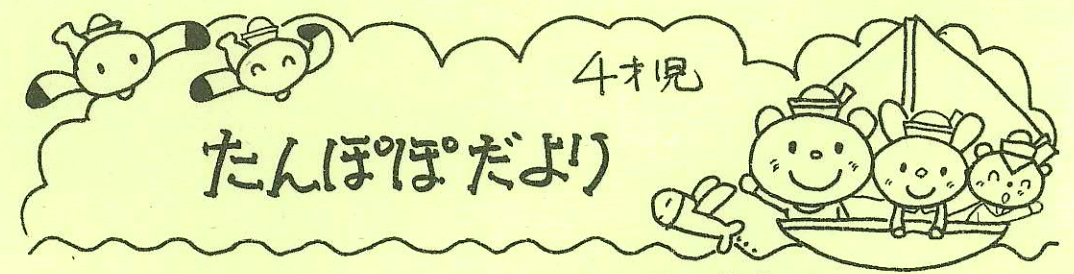 4才児
たんぽぽだより